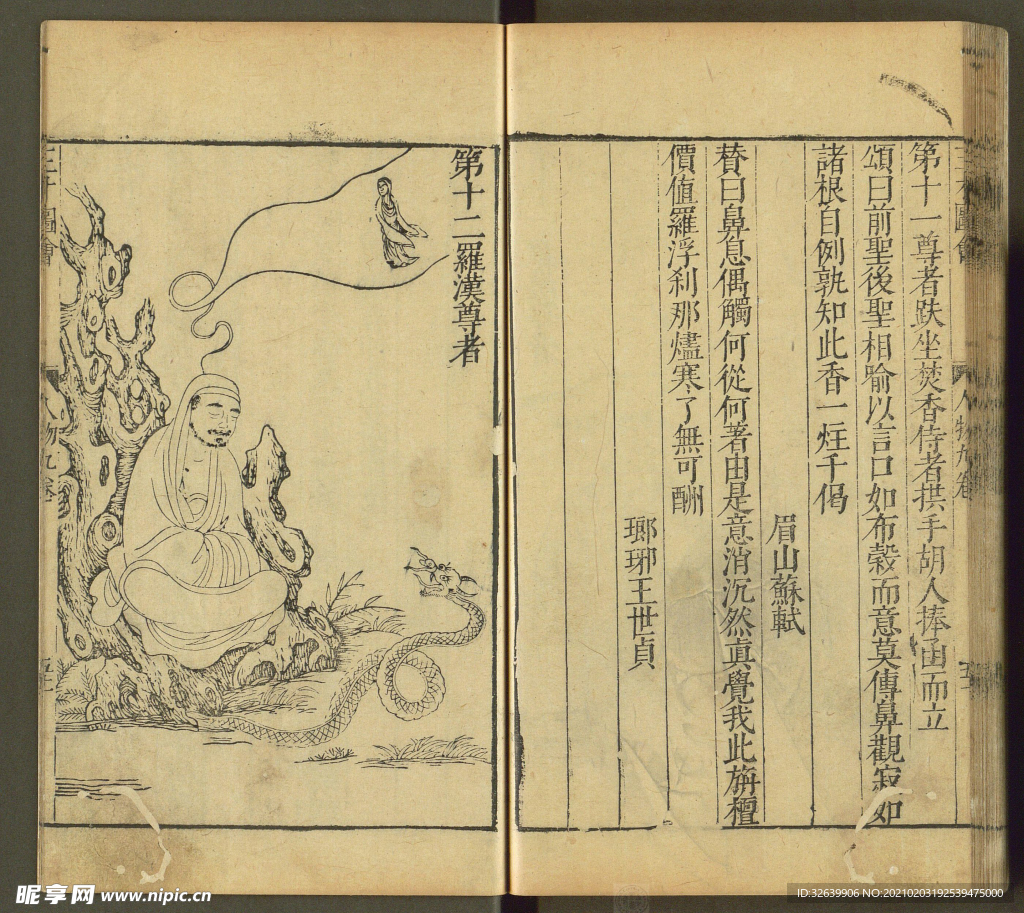 三才圖會
人物九卷
第十一尊者趺坐焚香侍者拱手胡人捧函而立
頌曰前聖後聖相喻以言口如布穀而意莫傳鼻觀寂如
諸根自例孰知此香一炷千偈
眉山蘇軾
賛曰鼻息偶觸何從何著由是意消沉然真覺我此旃檀
價值羅浮刹那燼寒了無可酬
瑯琊王世貞
第十二羅漢尊者
圖會
人物九卷
昵享网 www.nipic.cn
ID:32639906 NO:20210203192539475000